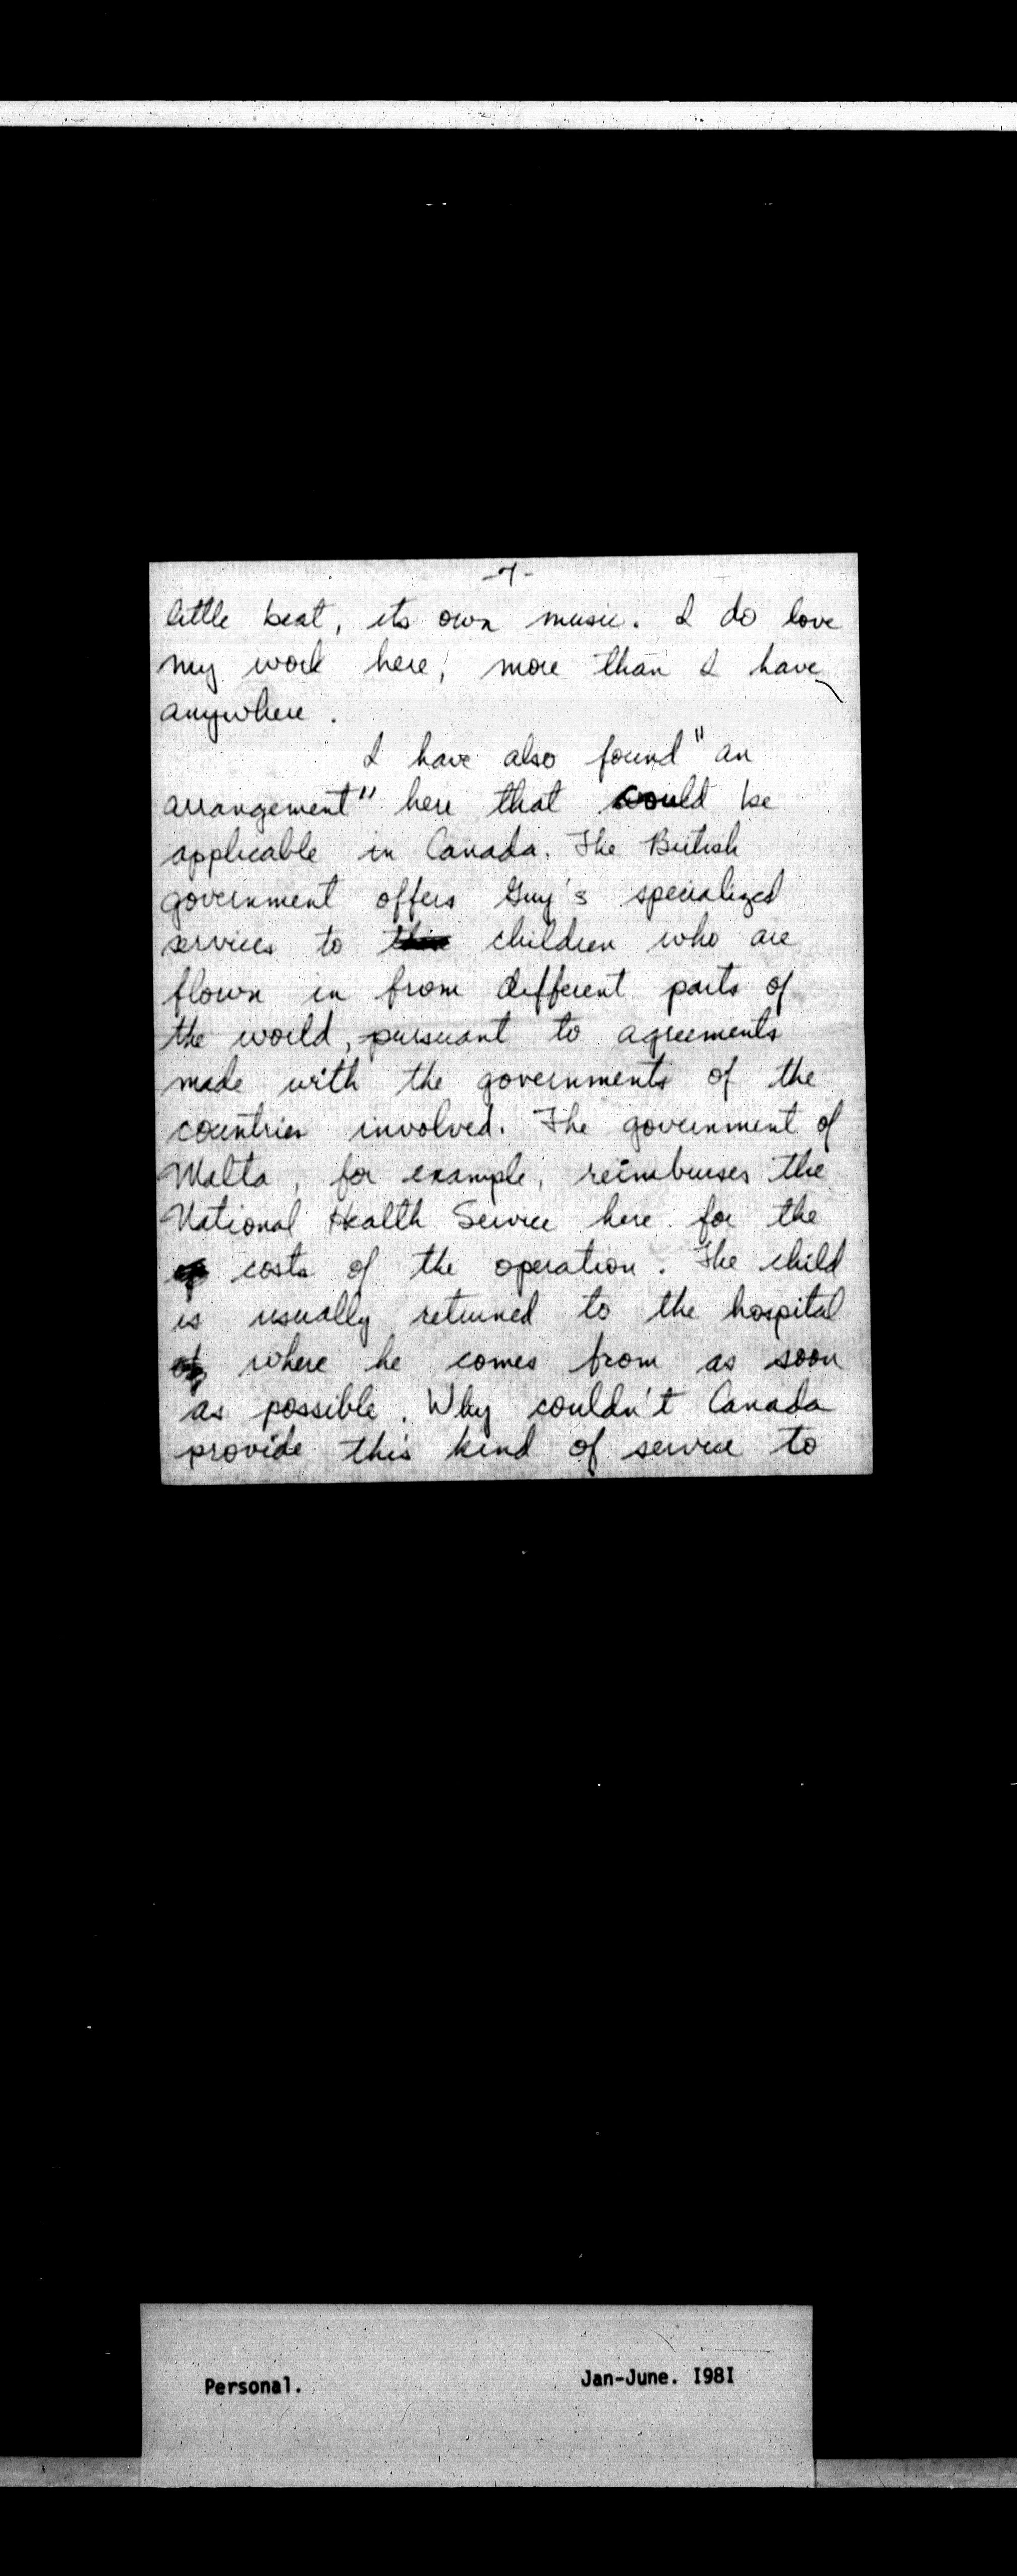 -7-
little beat, its own music. I do love
my work here, more than I have
anywhere.
I have also found "an
arrangement" here that would be
applicable in Canada. The British
government offers Guy's specialized
services to this children who are
flown in from different parts of
the world, pursuant to agreements
made with the governments of the
countries involved. The government of
Malta, for example, reimburses the
National Health Service here for the
costs of the operation. The child
is usually returned to the hospital
where he comes from as soon
as possible. Why couldn't Canada
provide this kind of service to
Personal. Jan-June. I98I